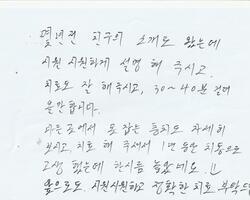 몇년전 친구의 소개로 왔는데
시원시원하게 설명 해 주시고.
치료도 잘 해주시고, 30~40분 걸려
올만 합니다.
다른곳에서 못 잡는 통증도 자세히
보시고, 치료 해 주셔서 1년 동안 치통으로
고생 했는데 한시름 놓았네요. !!
앞으로도 시원시원하고 정확한 치료 부탁드